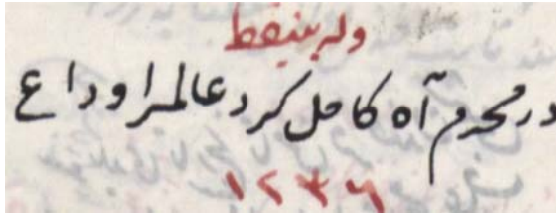 وله بینقط
در محرم آه کامل کرد عالمرا وداع
۱۲۳۶